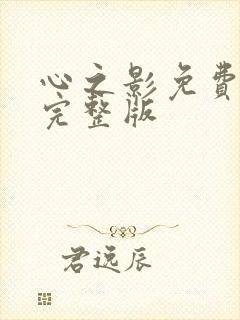 心之影免费
完整版
君远辰